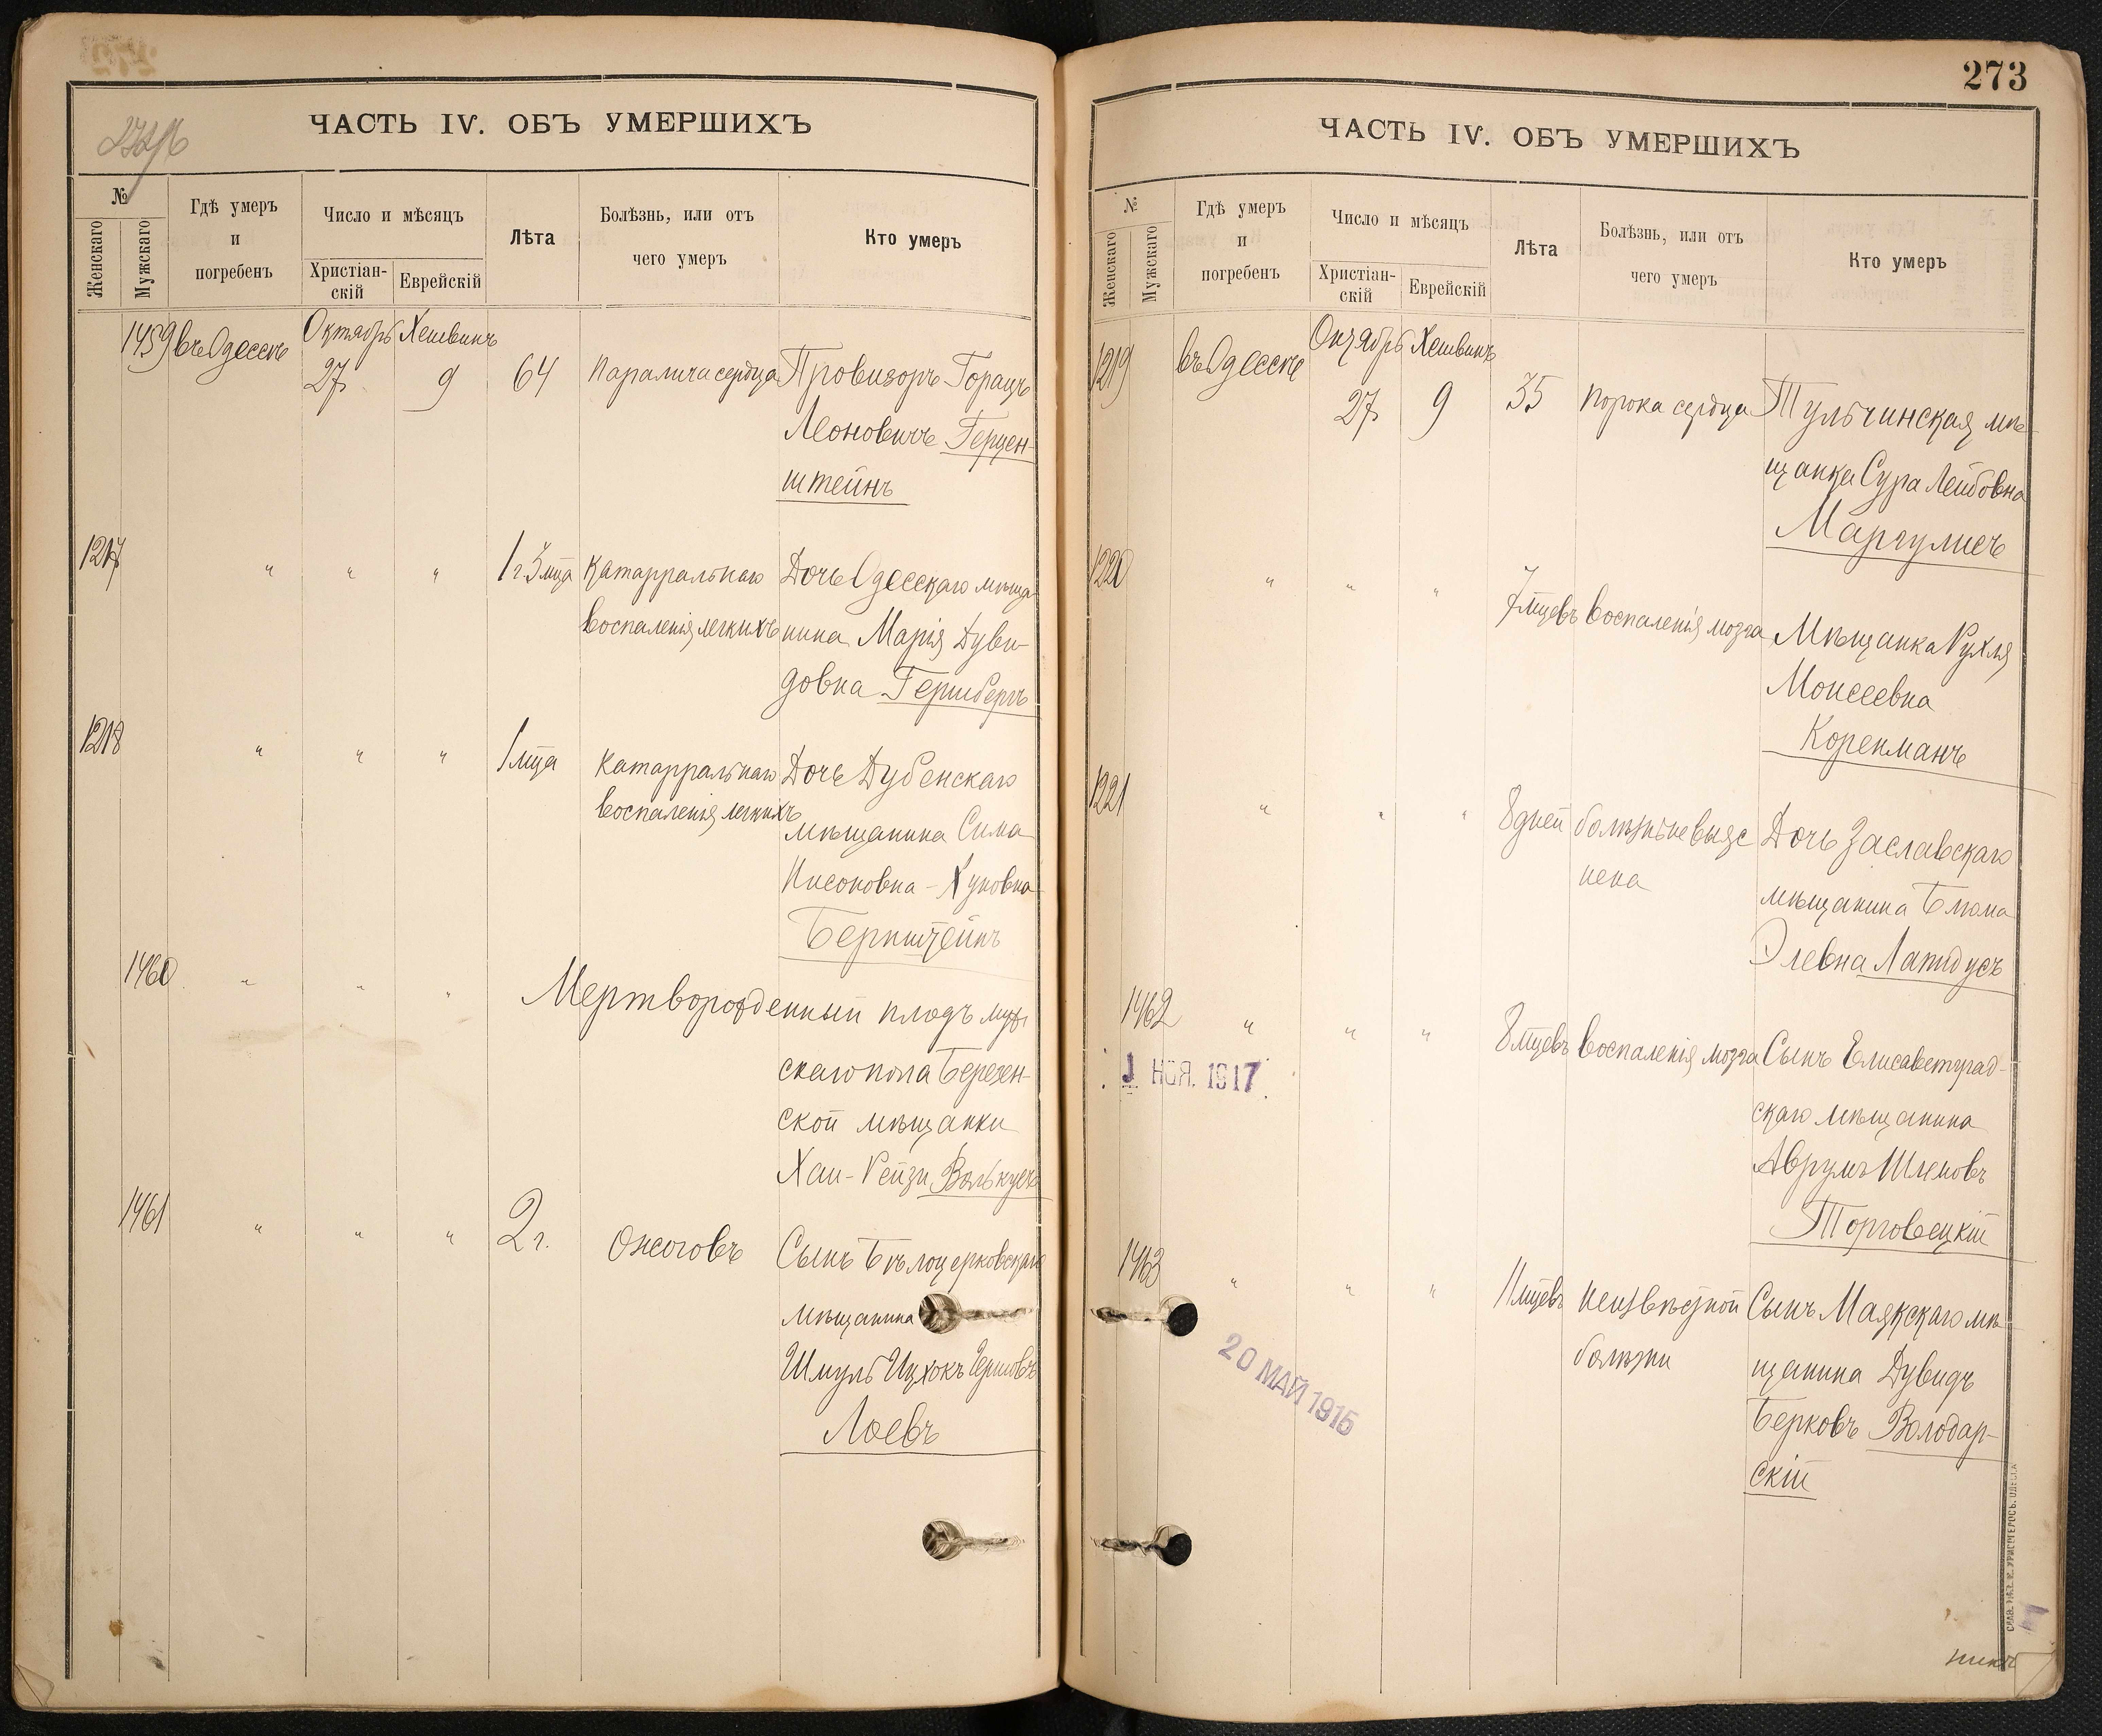 ЧАСТЬ IV. ОБЪ УМЕРШИХЪ
№
Женскаго
Мужскаго
Гдѣ умеръ
и
погребенъ
Число и мѣсяцъ
Христіан-
скій
Еврейскій
Лѣта
Болѣзнь, или отъ
чего умеръ
Кто умеръ
1459 въ Одессѣ Октябрь 27 Хешвинъ 9 64 Паралича сердца Провизоръ Горацъ
Леоновичъ Герцен-
штейнъ
1217 " " " 1 г. 3 мца Катарральнаго Дочь Одесскаго мѣща-
воспаленія легкихъ нина Марія Дуви-
довна Гершбергъ
1218 " " " 1 мца Катарральнаго Дочь Дубенскаго
воспаленія легкихъ мѣщанина Сима
Нисоновна-Хуновна
Бернштейнъ
1460 " " " Мертворожденный плодъ муж-
скаго пола Березен-
ской мѣщанки
Хаи-Рейзи Валькусъ
1461 " " " 2 г. Ожоговъ Сынъ Бѣлоцерковскаго
мѣщанина
Шмуль Ицхокъ Гершовъ
Лоевъ
273
ЧАСТЬ IV. ОБЪ УМЕРШИХЪ
№
Женскаго
Мужскаго
Гдѣ умеръ
и
погребенъ
Число и мѣсяцъ
Христіан-
скій
Еврейскій
Лѣта
Болѣзнь, или отъ
чего умеръ
Кто умеръ
1219 въ Одессѣ Октябрь 27 Хешвинъ 9 35 Порока сердца Тульчинская мѣ-
щанка Сура Лейбовна
Маргулисъ
1220 " " " 7 мцевъ Воспаленія мозга Мѣщанка Рухля
Моисеевна
Коренманъ
1221 " " " 8 дней болѣзнь не выяс Дочь Заславскаго
нена мѣщанина Блюма
Элевна Лапидусъ
1462 " " " 8 мцевъ Воспаленія мозга Сынъ Елисаветград-
1 НОЯ. 1917
скаго мѣщанина
Аврумъ Шлемовъ
Торговецкій
1463 " " " 11 мцевъ Неизвѣстной Сынъ Маякскаго мѣ-
болѣзни щанина Дувидъ
20 МАЙ 1915
Берковъ Володар-
скій